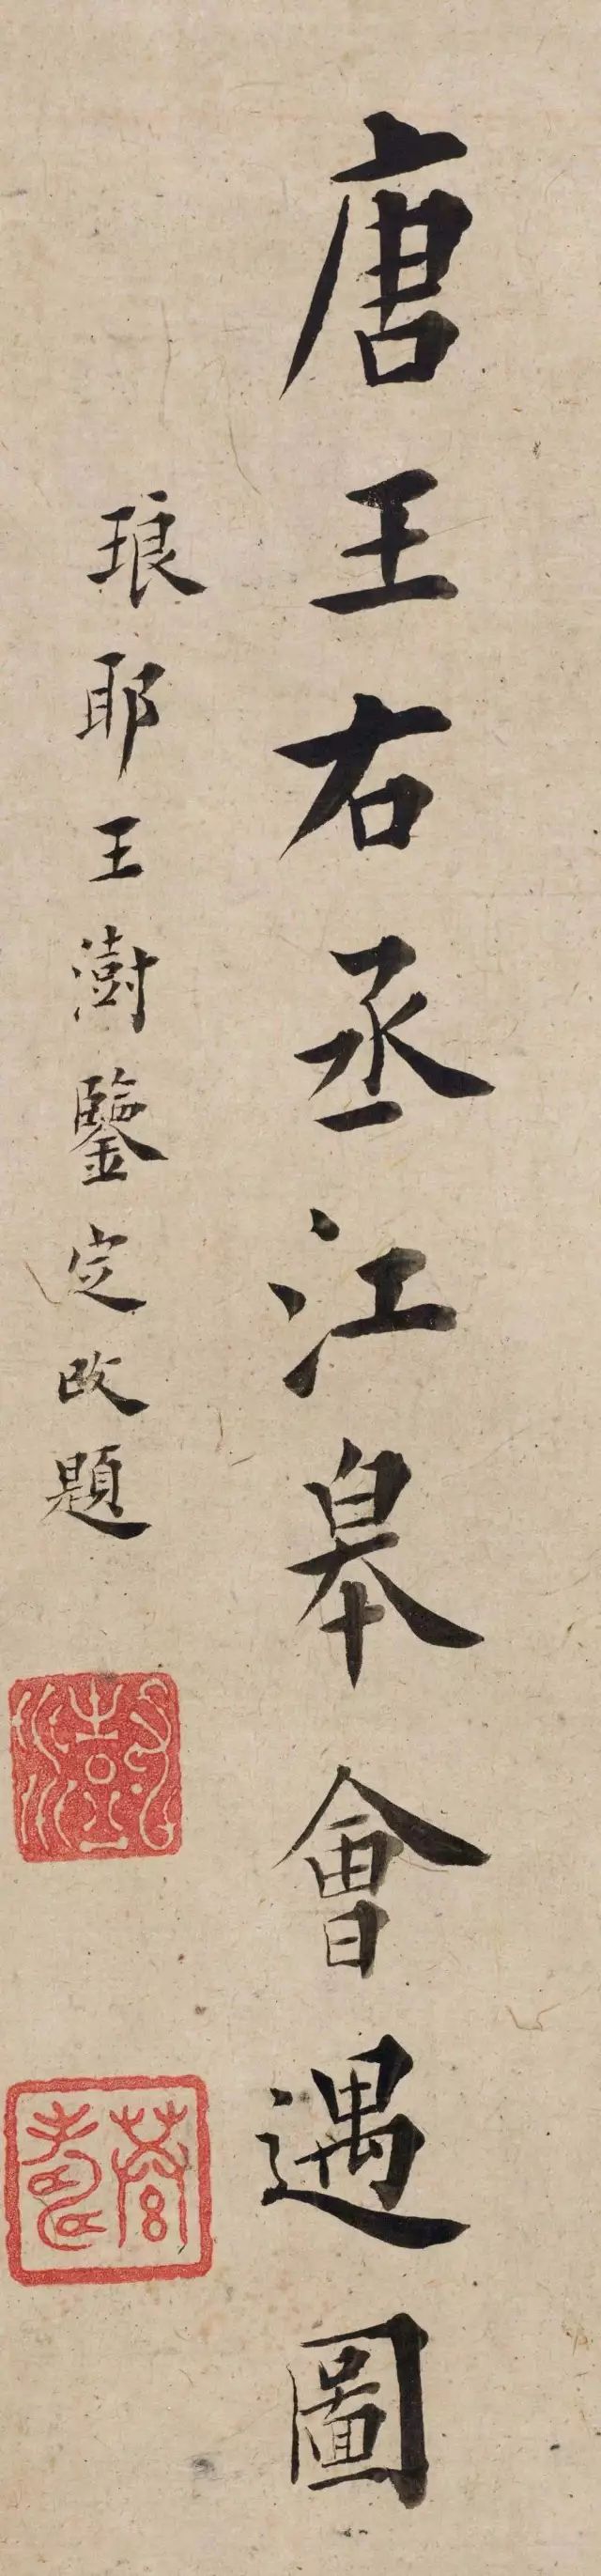 唐王右丞江皋會遇圖
琅耶王澍鑒定改題
澍